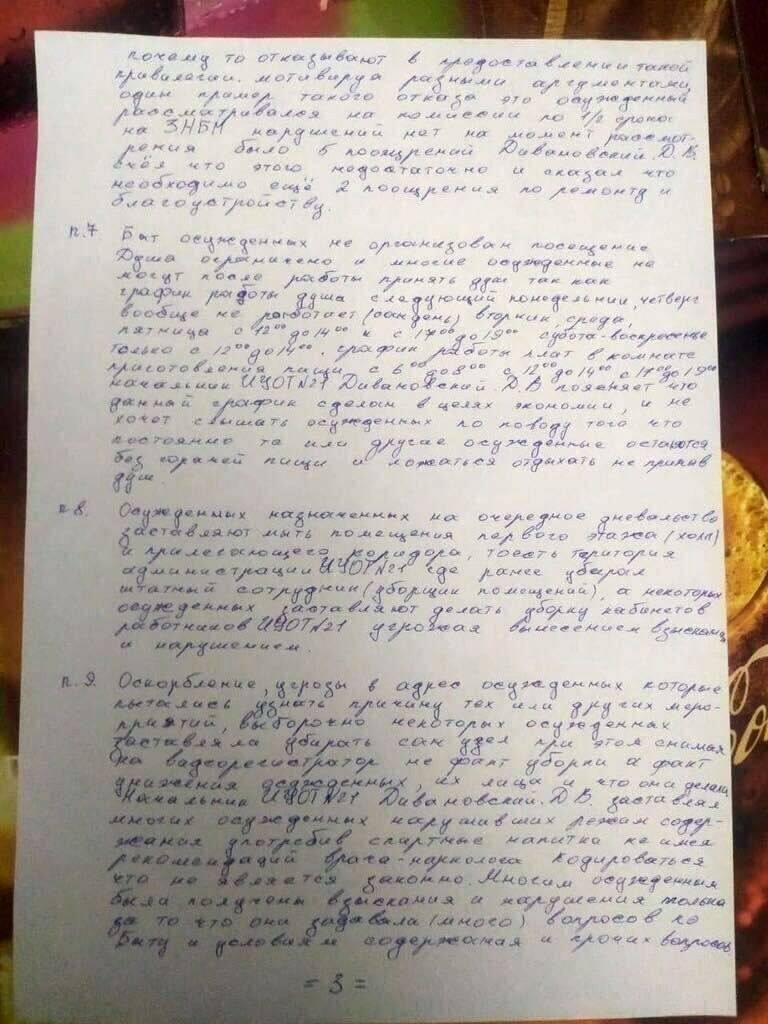 почему то отказывают в предоставлении такой
привилегии. мотивируя разными аргументами,
один пример такого отказа это осужденный
рассматривался на комиссии по 1/2 срока
на ЗНБМ нарушений нет на момент рассмот-
рения было 5 поощрений Дивановский. Д. В.
счёл что этого недостаточно и сказал что
необходимо ещё 2 поощрения по ремонту и
благоустройству.
п.7 Быт осужденных не организован посещение
Душа ограничено и многие осужденные не
могут после работы принять душ так как
график работы душа следующий понедельник, четверг
вообще не работает (сандень) вторник, среда,
пятница с 12⁰⁰ до 14⁰⁰ и с 17⁰⁰ до 19⁰⁰ субота-воскресенье
только с 12⁰⁰ до 14⁰⁰. график работы плат в комнате
приготовления пищи с 6⁰⁰ до 8⁰⁰ с 12⁰⁰ до 14⁰⁰ с 17⁰⁰ до 19⁰⁰
начальник ИУОТ№21 Дивановский. Д. В поясняет что
данный график сделан в целях экономии, и не
хочет слышать осужденных по поводу того что
постоянно те или другие осужденные остаются
без горячей пищи и ложаться отдыхать не приняв
душ.
п 8. Осужденных назначенных на очередное дневальство
заставляют мыть помещения первого этажа (холл)
и прилегающего коридора, тоесть територия
администрации ИУОТ№21 где ранее убирал
штатный сотрудник (уборщик помещений), а некоторых
осужденных заставляют делать уборку кабинетов
работников ИУОТ№21 угрожая вынесением взыскания
и нарушением.
п. 9. Оскорбление, угрозы в адрес осужденных которые
пытались узнать причину тех или других меро-
приятий, выборочно некоторых осужденных
заставляла убирать сан узел при этом снимая
на видеорегистратор не факт уборки а факт
унижения осужденных, их лица и что они делали
Начальник ИУОТ№21 Дивановский. Д В. заставлял
многих осужденных нарушивших режим содер-
жания употребив спиртные напитка не имея
рекомендаций врача-нарколога кодироваться
что не является законно. Многим осужденным
были получены взыскания и нарушения только
за то что они задавали (много) вопросов по
Быту и условиям содержания и прочих вопросов
= 3 =